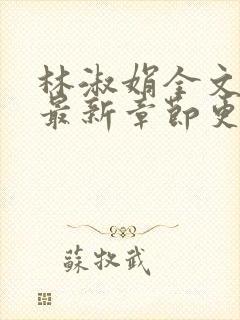 林淑娟全文
最新章節更
蘇牧武